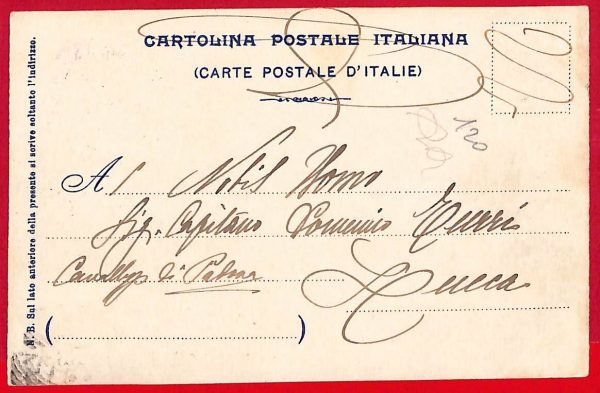 CARTOLINA POSTALE ITALIANA
(CARTE POSTALE D'ITALIE)
120
Al Nobil Homo
Sig. Capitano Domenico
di
Lucca
N. B. Sul lato anteriore della presente si scrive soltanto l'indirizzo.